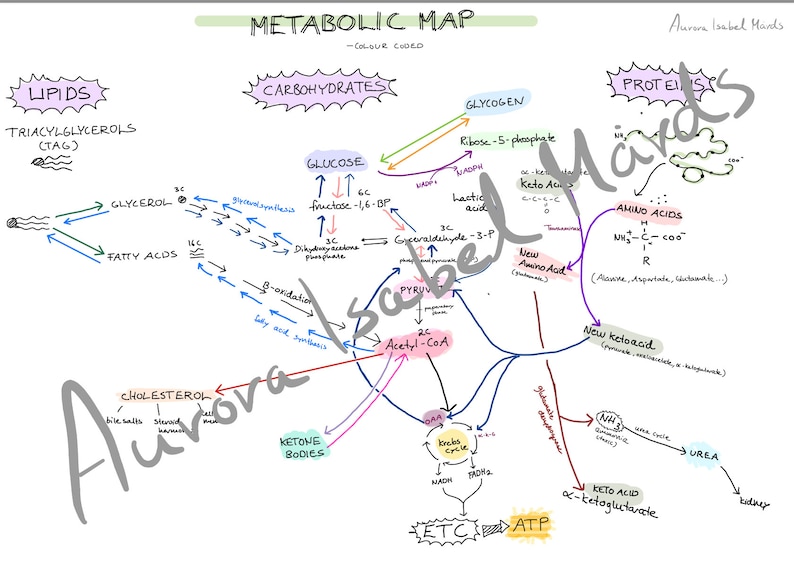 METABOLIC MAP
- COLOUR CODED
Aurora Isabel Märds
LIPIDS
CARBOHYDRATES
PROTEINS
TRIACYLGLYCEROLS
(TAG)
GLYCOGEN
Ribose-5-phosphate
NADP+
NADPH
GLUCOSE
6C
fructose-1,6-BP
Lactic
acid
3C
Dihydroxyacetone
phosphate
3C
Glyceraldehyde-3-P
PYRUVATE
preparatory
phase
2C
Acetyl-CoA
GLYCEROL
3C
glycerol synthesis
FATTY ACIDS
16C
β-oxidation
fatty acid synthesis
CHOLESTEROL
bile salts
steroid
cell
KETONE
BODIES
OAA
Krebs
cycle
α-k-G
NADH
FADH2
ETC
ATP
α-ketoglutarate
KETO ACIDS
C-C-C-C
O
NH3
COO-
AMINO ACIDS
H
NH3+ - C - COO-
R
(Alanine, Aspartate, Glutamate...)
New
Amino Acid
(glutamate)
New Ketoacid
(pyruvate, oxaloacetate, α-ketoglutarate)
glutamate
dehydrogenase
NH3
ammonia
(toxic)
urea cycle
UREA
kidney
KETO ACID
α-ketoglutarate
Aurora Isabel Märds